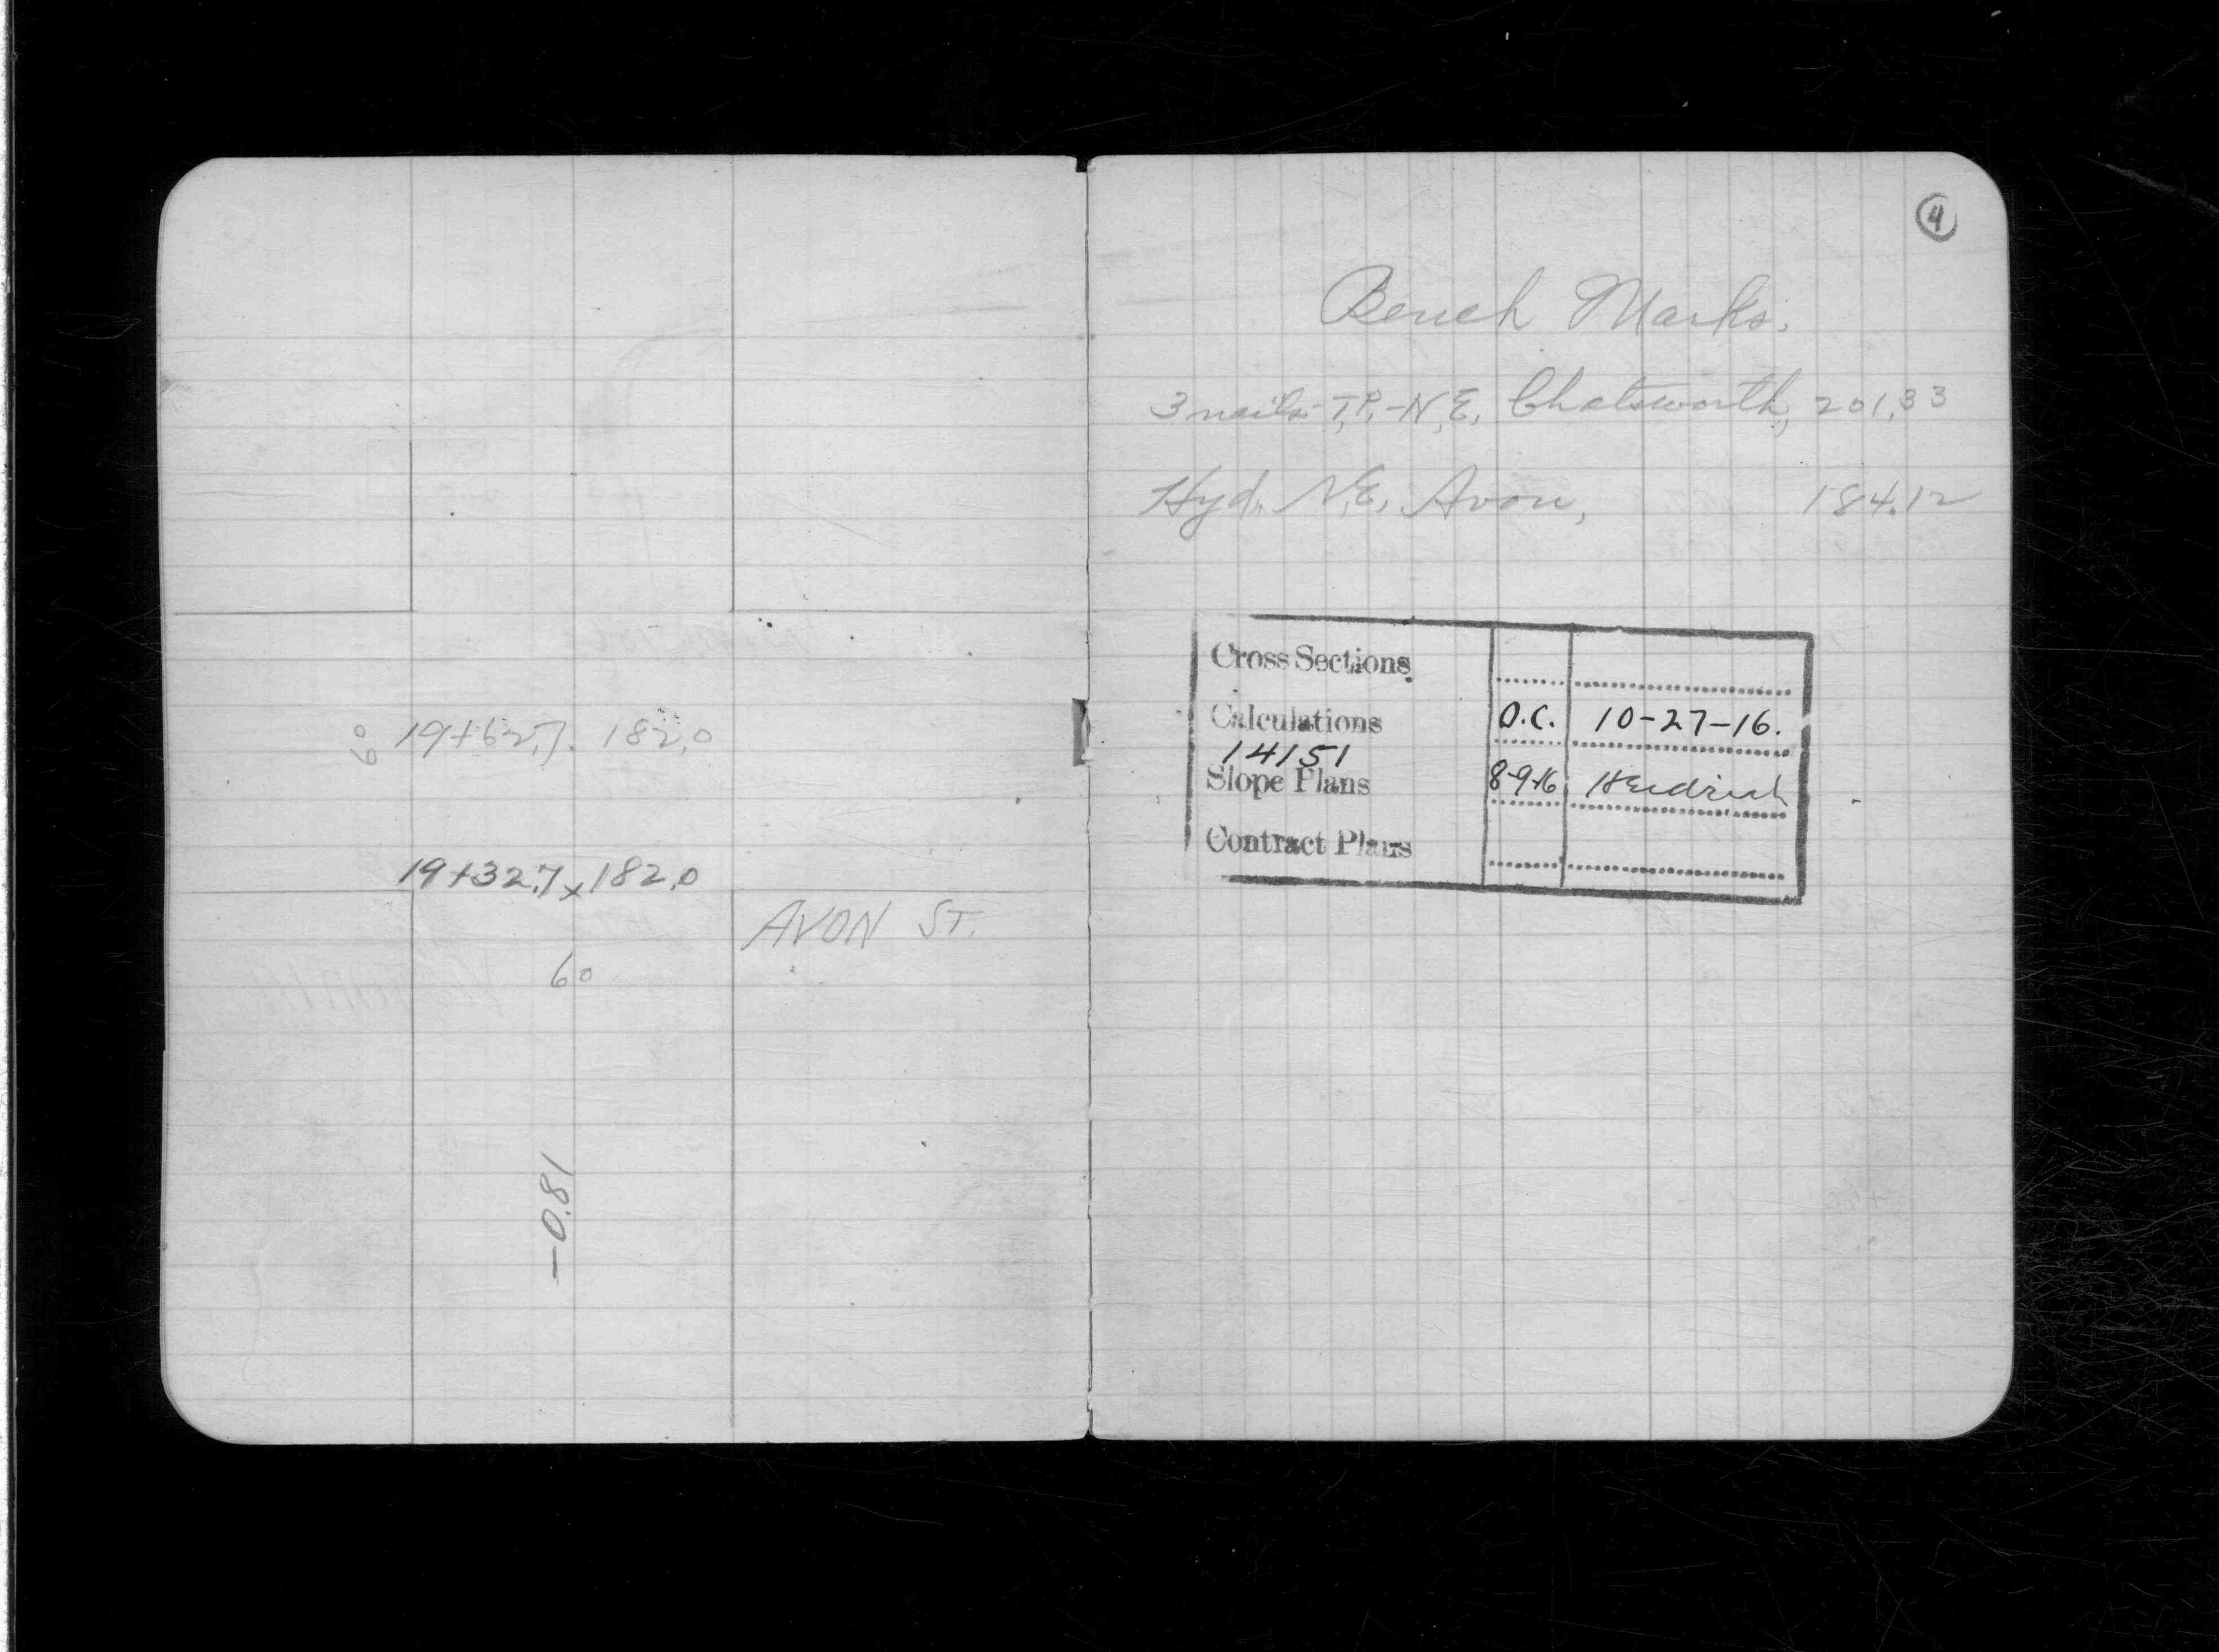 60 19+62.7. 182.0
19+32.7x182.0
AVON ST.
60
-0.81
4
Bench Marks.
3 nails-T.P.-N.E. Chatsworth, 201.33
Hyd. N.E. Avon, 184.12
Cross Sections
Calculations O.C. 10-27-16.
14151
Slope Plans 8-9-16
Contract Plans